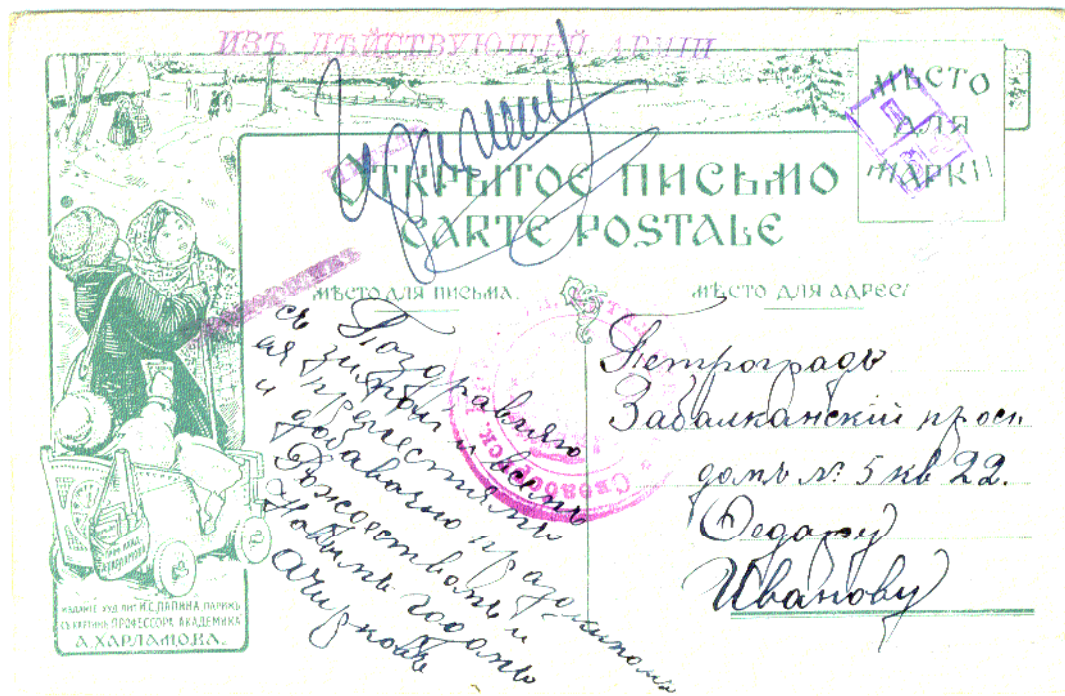 ИЗЪ ДѢЙСТВУЮЩЕЙ АРМІИ
МѢСТО
ДЛЯ
МАРКИ
ОТКРЫТОЕ ПИСЬМО
CARTE POSTALE
МѢСТО ДЛЯ ПИСЬМА.
МѢСТО ДЛЯ АДРЕСА
Поздравляю
съ зимой и всемъ
и добавочно праздникомъ
Рождествомъ и
Новымъ годомъ
Петроградъ
Забалканскій просп
домъ № 5 кв 22.
Федару
Иванову
ИЗДАНІЕ ХУД. ЛИТ. И.С. ЛАПИНА, ПАРИЖЪ
СЪ КАРТИНЫ ПРОФЕССОРА АКАДЕМИКА
А. ХАРЛАМОВА.